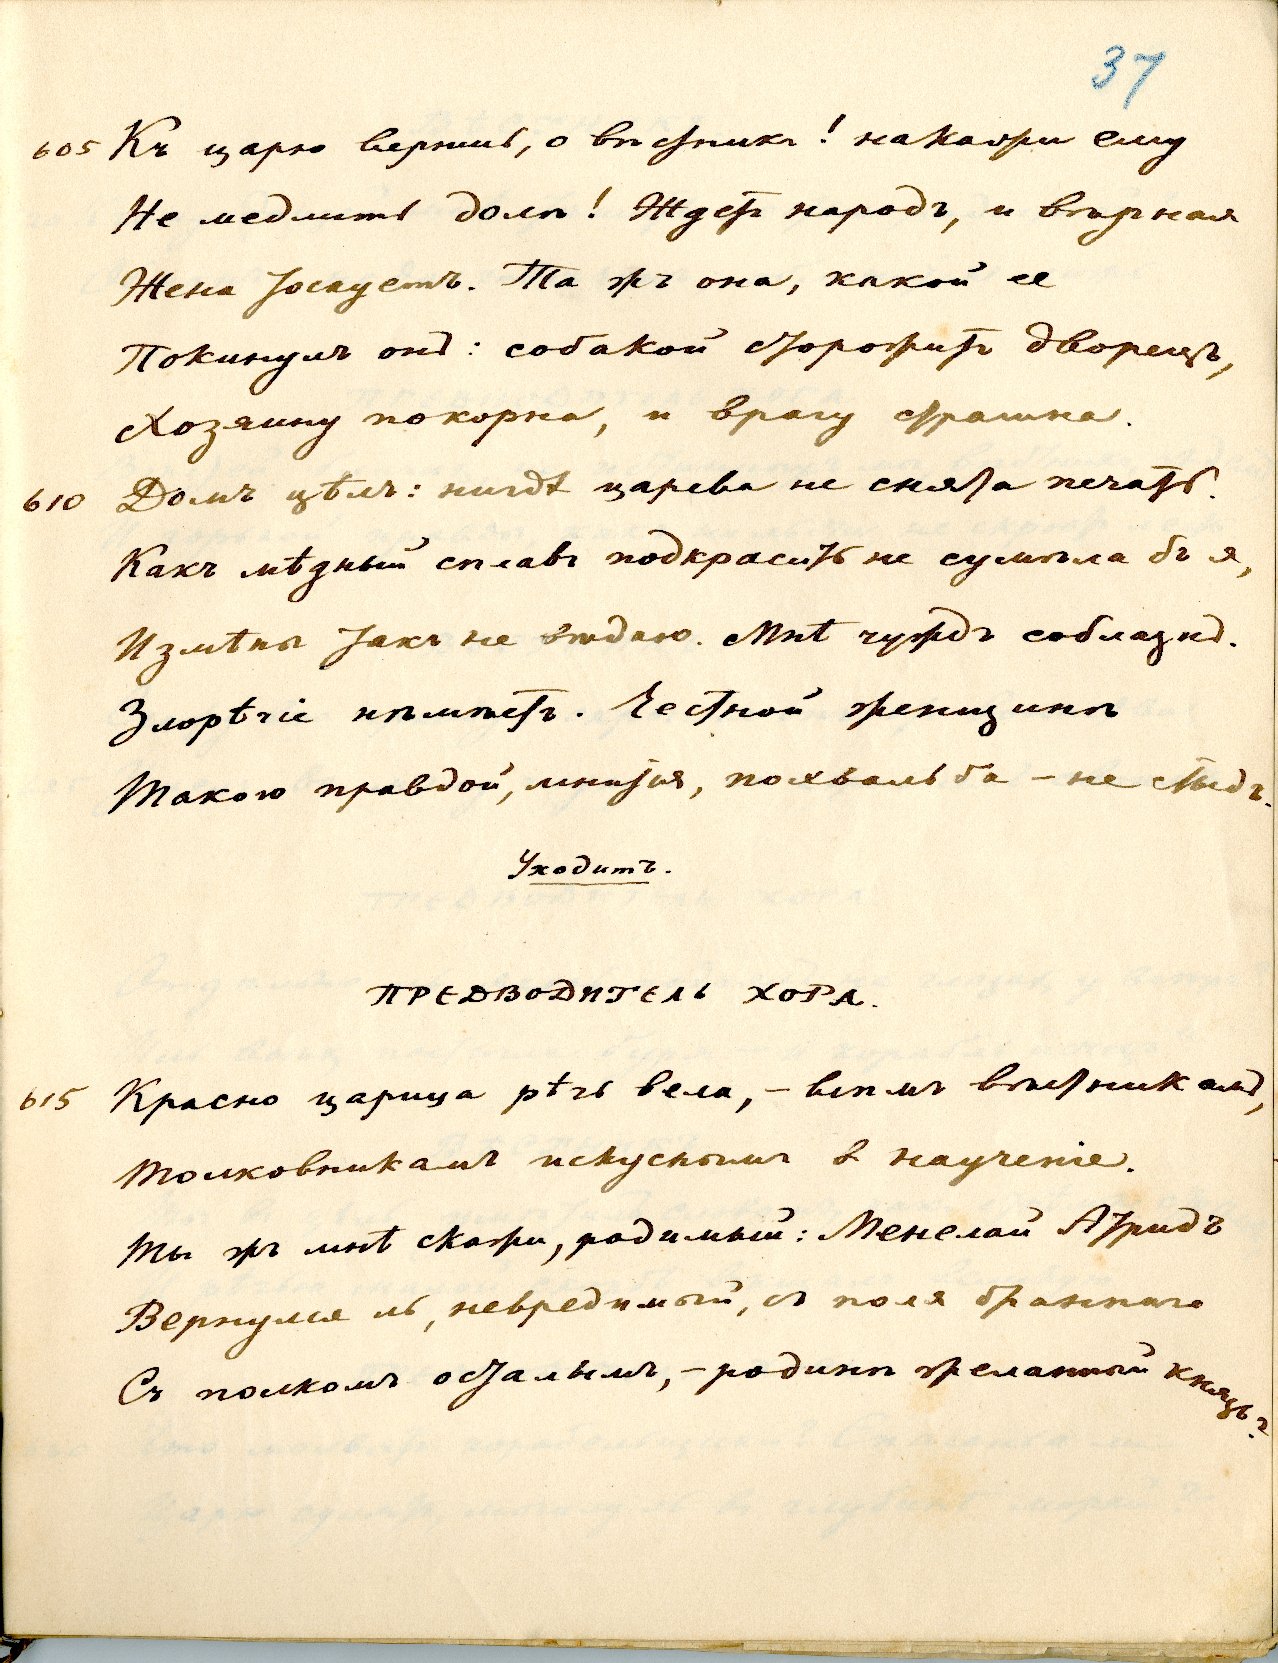 37
605 Къ царю вернись, о вѣстникъ! накажи ему
Не медлить долѣ! Ждетъ народъ, и вѣрная
Жена тоскуетъ. Та жъ она, какой ее
Покинулъ онъ: собакой сторожитъ дворецъ,
Хозяину покорна, и врагу страшна.
610 Домъ цѣлъ: нигдѣ царева не снята печать.
Какъ мѣдный сплавъ подкрасить не сумѣла бъ я,
Измѣны такъ не вѣдаю. Мнѣ чуждъ соблазнъ.
Злорѣчіе нѣмѣетъ. Честной женщинѣ
Такою правдой, мнится, похвальба – не стыдъ.
Уходитъ.
ПРЕДВОДИТЕЛЬ ХОРА.
615 Красно царица рѣчь вела, – всѣмъ вѣстникамъ,
Толковникамъ искуснымъ въ наученіе.
Ты жъ мнѣ скажи, родимый: Менелай Атридъ
Вернулся ль, невредимый, съ поля браннаго
Съ полкомъ осталымъ, – родинѣ желанный князь?